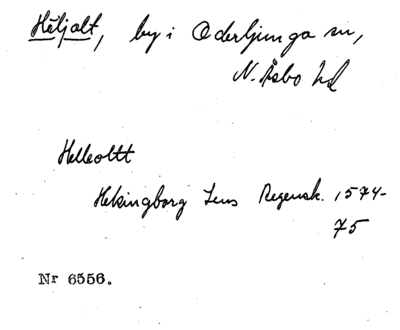 Häljalt, by i Oderljunga sn,
N. Åsbo hd
Helleoltt
Helsingborg Lens Regensk. 1574-
75
Nr 6556.